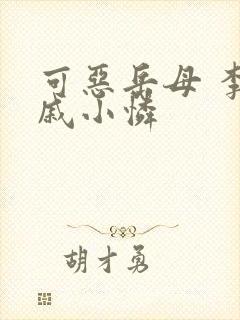 可惡岳母 李
戚小憐
胡才勇